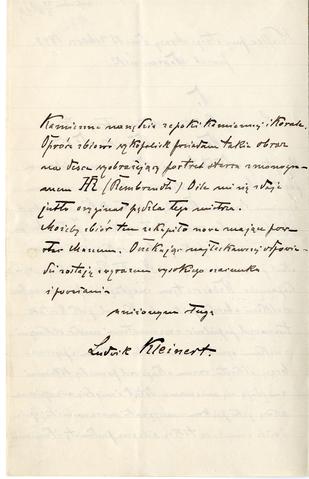 Kamienne narzędzia z epoki Kamiennej i Korale.
Oprócz zbioru wykopalisk posiadam także obraz
na desce wyobrażający portret starca z monogra-
mem (Rembrandt) O ile mi się zdaje
jest to oryginał pędzla tego mistrza.
zbiór ten zakupiło nowo mające pow-
stać Muzeum. Oczekując najłaskawszej odpowie-
dzi zostaję z wyrazem wysokiego szacunku
i poważania
uniżonym sługą
Ludwik Kleinert.